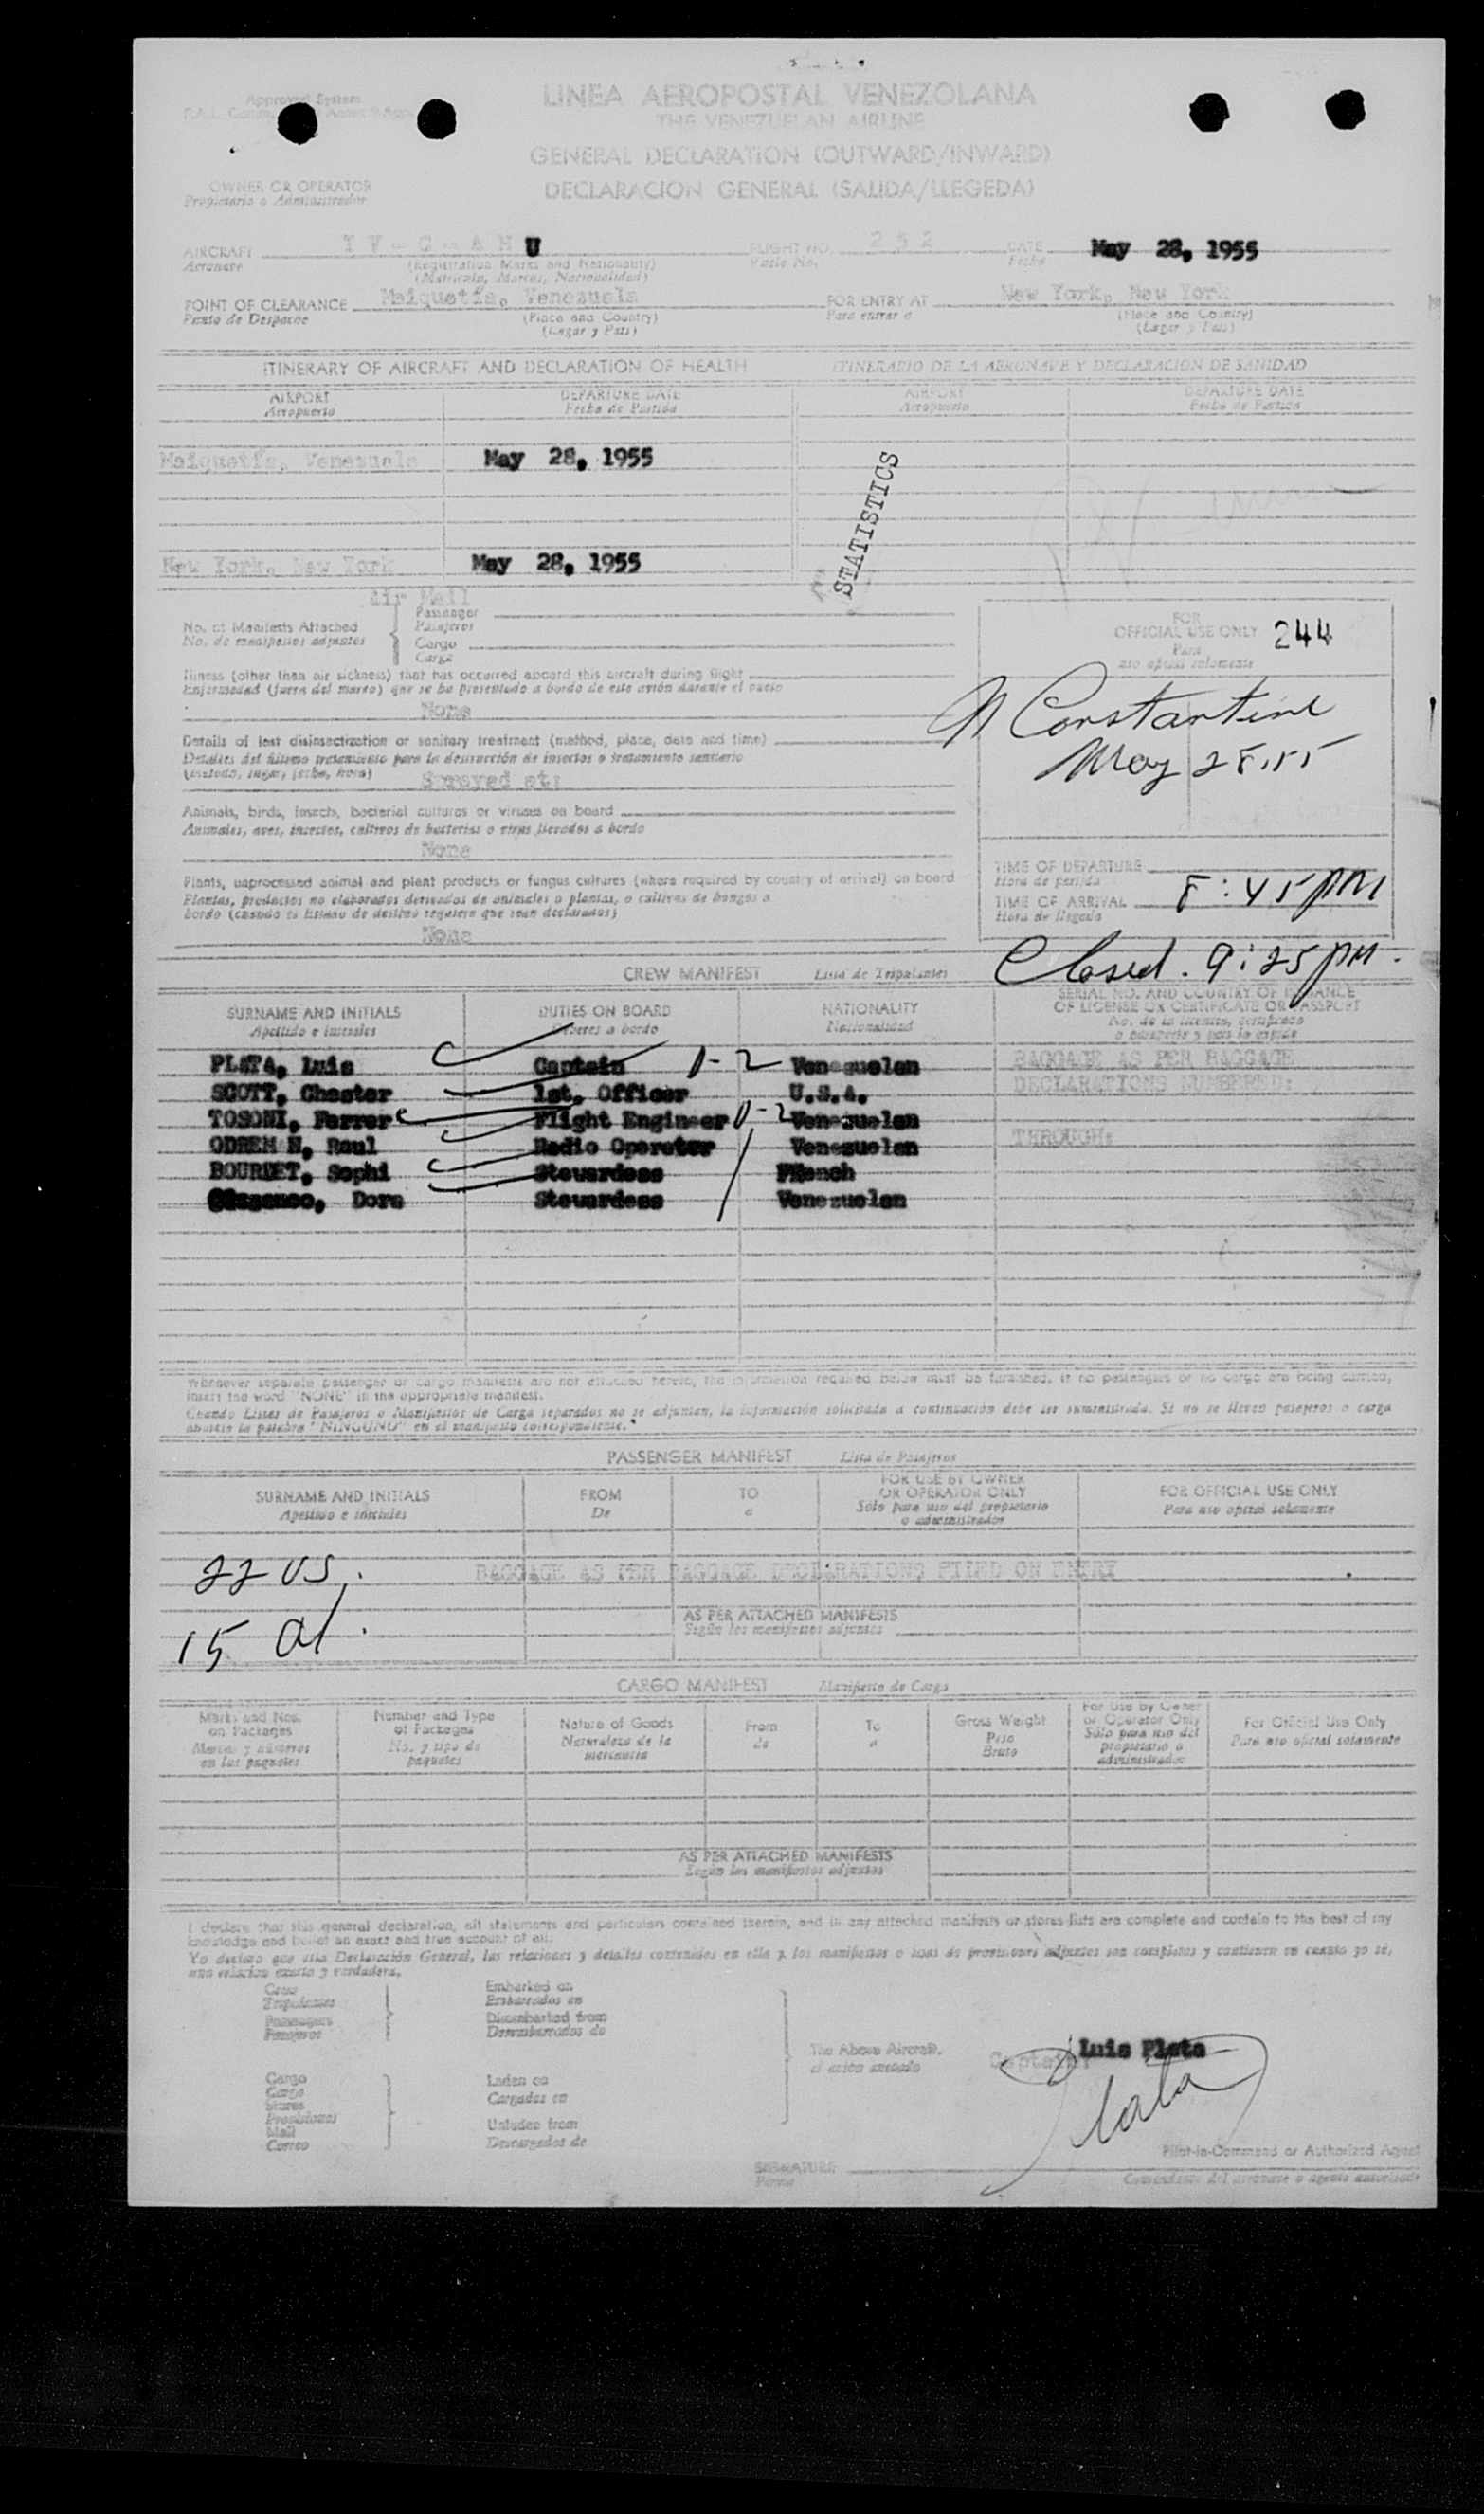 Approved System
LINEA AEROPOSTAL VENEZOLANA
THE VENEZUELAN AIRLINE
GENERAL DECLARATION (OUTWARD/INWARD)
DECLARACION GENERAL (SALIDA/LLEGEDA)
OWNER OR OPERATOR
Propietario o Administrador
AIRCRAFT YV-C-AMU FLIGHT NO. 252 DATE May 28, 1955
Aeronave (Registration Marks and Nationality) Vuelo No. Fecha
(Matricula, Marcas, Nacionalidad)
POINT OF CLEARANCE Maiquetia, Venezuela FOR ENTRY AT New York, New York
Punto de Despacho (Place and Country) Para entrar a (Place and Country)
(Lugar y Pais) (Lugar y Pais)
ITINERARY OF AIRCRAFT AND DECLARATION OF HEALTH ITINERARIO DE LA AERONAVE Y DECLARACION DE SANIDAD
AIRPORT DEPARTURE DATE AIRPORT DEPARTURE DATE
Aeropuerto Fecha de Partida Aeropuerto Fecha de Partida
Maiquetia, Venezuela May 28, 1955
STATISTICS
New York, New York May 28, 1955
Air Mail
No. of Manifests Attached Passenger
No. de manifiestos adjuntos Pasajeros
Cargo
Carga
FOR
OFFICIAL USE ONLY 244
Para
uso oficial solamente
Illness (other than air sickness) that has occurred aboard this aircraft during flight
Enfermedad (fuera del mareo) que se ha presentado a bordo de este avión durante el vuelo
None
N Constantine
May 28.55
Details of last disinsectization or sanitary treatment (method, place, date and time)
Detalles del último tratamiento para la destrucción de insectos o tratamiento sanitario
(método, lugar, fecha, hora) Sprayed at:
Animals, birds, insects, bacterial cultures or viruses on board
Animales, aves, insectos, cultivos de bacterias o virus llevados a bordo
None
Plants, unprocessed animal and plant products or fungus cultures (where required by country of arrival) on board
Plantas, productos no elaborados derivados de animales o plantas, o cultivos de hongos a
bordo (cuando el Estado de destino requiera que sean declarados)
None
TIME OF DEPARTURE
Hora de partida
TIME OF ARRIVAL 8:45 PM
Hora de llegada
Closed. 9:25 PM.
CREW MANIFEST Lista de Tripulantes
SURNAME AND INITIALS DUTIES ON BOARD NATIONALITY SERIAL NO. AND COUNTRY OF ISSUANCE
OF LICENSE OR CERTIFICATE OR PASSPORT
Apellido e iniciales Deberes a bordo Nacionalidad No. de la licencia, certificado
o pasaporte y pais lo expide
PLATA, Luis Captain D-2 Venezuelan BAGGAGE AS PER BAGGAGE
SCOTT, Chester 1st. Officer U.S.A. DECLARATIONS NUMBERED:
TOSONI, Ferrer Flight Engineer D-2 Venezuelan
ODREMAN, Raul Radio Operator Venezuelan THROUGH:
BOURDET, Sophi Stewardess French
Dora Stewardess Venezuelan
Whenever separate passenger or cargo manifests are not attached hereto, the information required below must be furnished. If no passengers or no cargo are being carried,
insert the word "NONE" in the appropriate manifest.
Cuando Listas de Pasajeros o Manifiestos de Carga separados no se adjunten, la información solicitada a continuación debe ser suministrada. Si no se llevan pasajeros o carga
anótese la palabra "NINGUNO" en el manifiesto correspondiente.
PASSENGER MANIFEST Lista de Pasajeros
SURNAME AND INITIALS FROM TO FOR USE BY OWNER OR OPERATOR ONLY FOR OFFICIAL USE ONLY
Apellido e iniciales De a Sólo para uso del propietario o administrador Para uso oficial solamente
22 US.
BAGGAGE AS PER BAGGAGE DECLARATIONS FILED ON ENTRY
15 al.
AS PER ATTACHED MANIFESTS
Según los manifiestos adjuntos
CARGO MANIFEST Manifiesto de Carga
Marks and Nos. on Packages Number and Type of Packages Nature of Goods From To Gross Weight For Use by Owner or Operator Only For Official Use Only
Marcas y números en los paquetes No. y tipo de paquetes Naturaleza de la mercancía de a Peso Bruto Sólo para uso del propietario o administrador Para uso oficial solamente
AS PER ATTACHED MANIFESTS
Según los manifiestos adjuntos
I declare that this general declaration, all statements and particulars contained therein, and in any attached manifests or stores lists are complete and contain to the best of my
knowledge and belief an exact and true account of all:
Yo declaro que esta Declaración General, las relaciones y detalles contenidos en ella y los manifiestos o listas de provisiones adjuntos son completos y contienen en cuanto yo sé,
una relación exacta y verdadera.
Crew Embarked on
Tripulantes Embarcados en
Passengers Disembarked from
Pasajeros Desembarcados de
The Above Aircraft.
el avión anotado
Captain Luis Plata
Plata
Cargo Laden on
Carga Cargados en
Stores
Provisiones Unladen from
Mail
Correo Descargados de
Pilot-in-Command or Authorized Agent
SIGNATURE
Firma Comandante del aeronave o agente autorizado